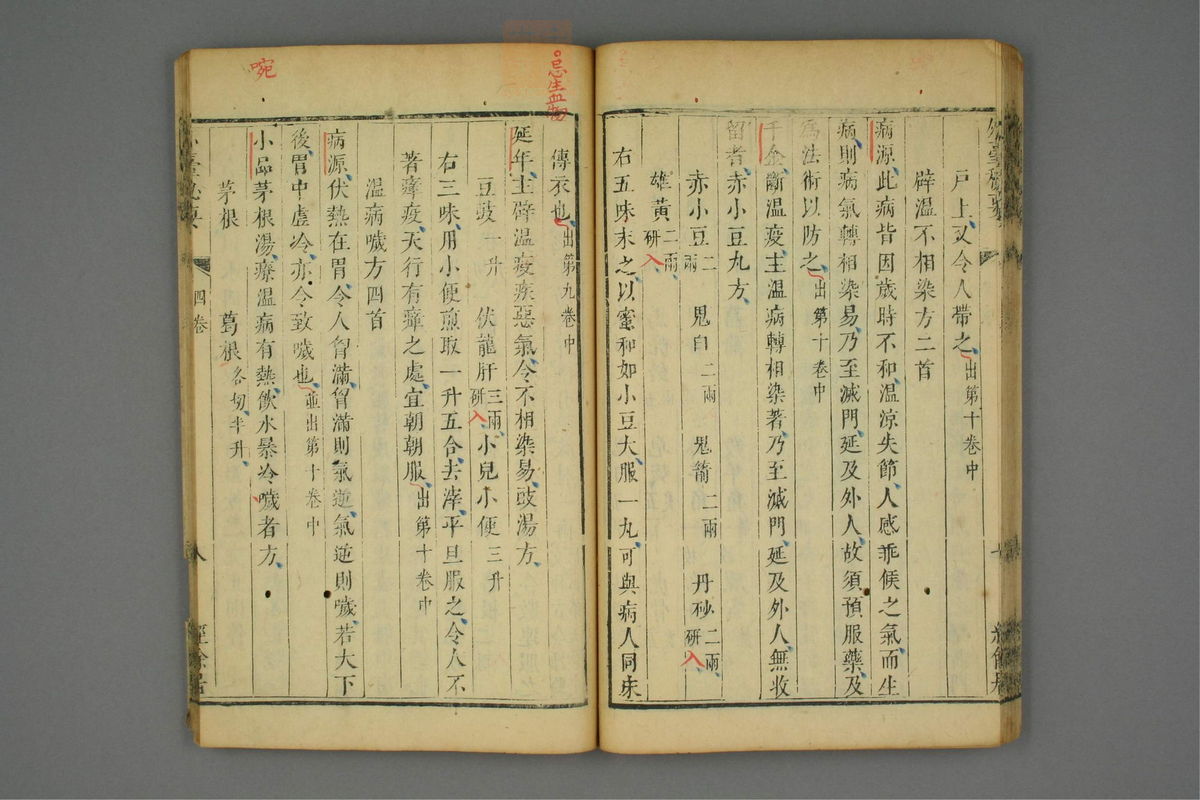 戶上又令人帶之出第十卷中
辟溫不相染方二首
病源此病皆因歲時不和溫涼失節人感乖候之氣而生
病則病氣轉相染易乃至滅門延及外人故須預服藥及
爲法術以防之出第十卷中
千金斷溫疫主溫病轉相染著乃至滅門延及外人無收
留者赤小豆丸方
赤小豆二兩 鬼臼二兩 鬼箭二兩 丹砂二兩研入
雄黃二兩研入
右五味末之以蜜和如小豆大服一丸可與病人同床
傳衣也出第九卷中
延年主辟溫疫疾惡氣令不相染易豉湯方
豆豉一升 伏龍肝三兩研入 小兒小便三升
右三味用小便煎取一升五合去滓平旦服之令人不
著瘴疫天行有瘴之處宜朝朝服出第十卷中
溫病噦方四首
病源伏熱在胃令人胷滿胷滿則氣逆氣逆則噦若大下
後胃中虛冷亦令致噦也並出第十卷中
小品茅根湯療溫病有熱飲水暴冷噦者方
茅根 葛根各切半升
四卷
八
經餘居
忌生血物
啘